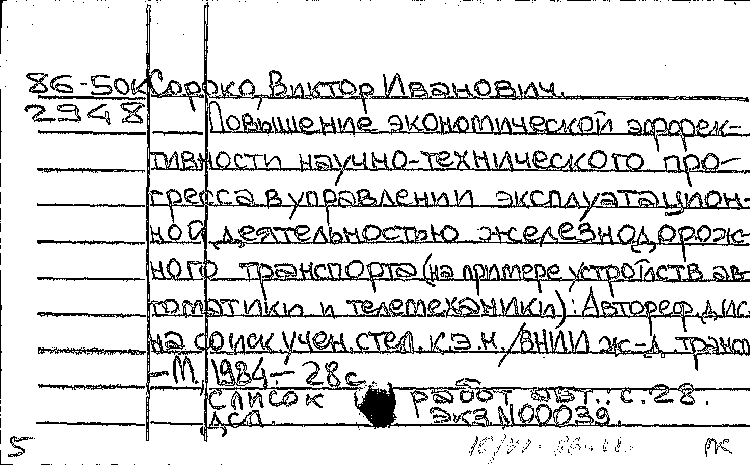 86-50к Сороко, Виктор Иванович.
2948 Повышение экономической эффек-
тивности научно-технического про-
гресса в управлении эксплуатацион-
ной деятельностью железнодорож-
ного транспорта (на примере устройств ав-
томатики и телемеханики): Автореф. дис.
на соиск. учен. степ. к.э.н. / ВНИИ ж-д. трансп
-М., 1984.- 28 с.
Список работ авт.: с. 28.
ДСП. Экз N00039.
5 ПК